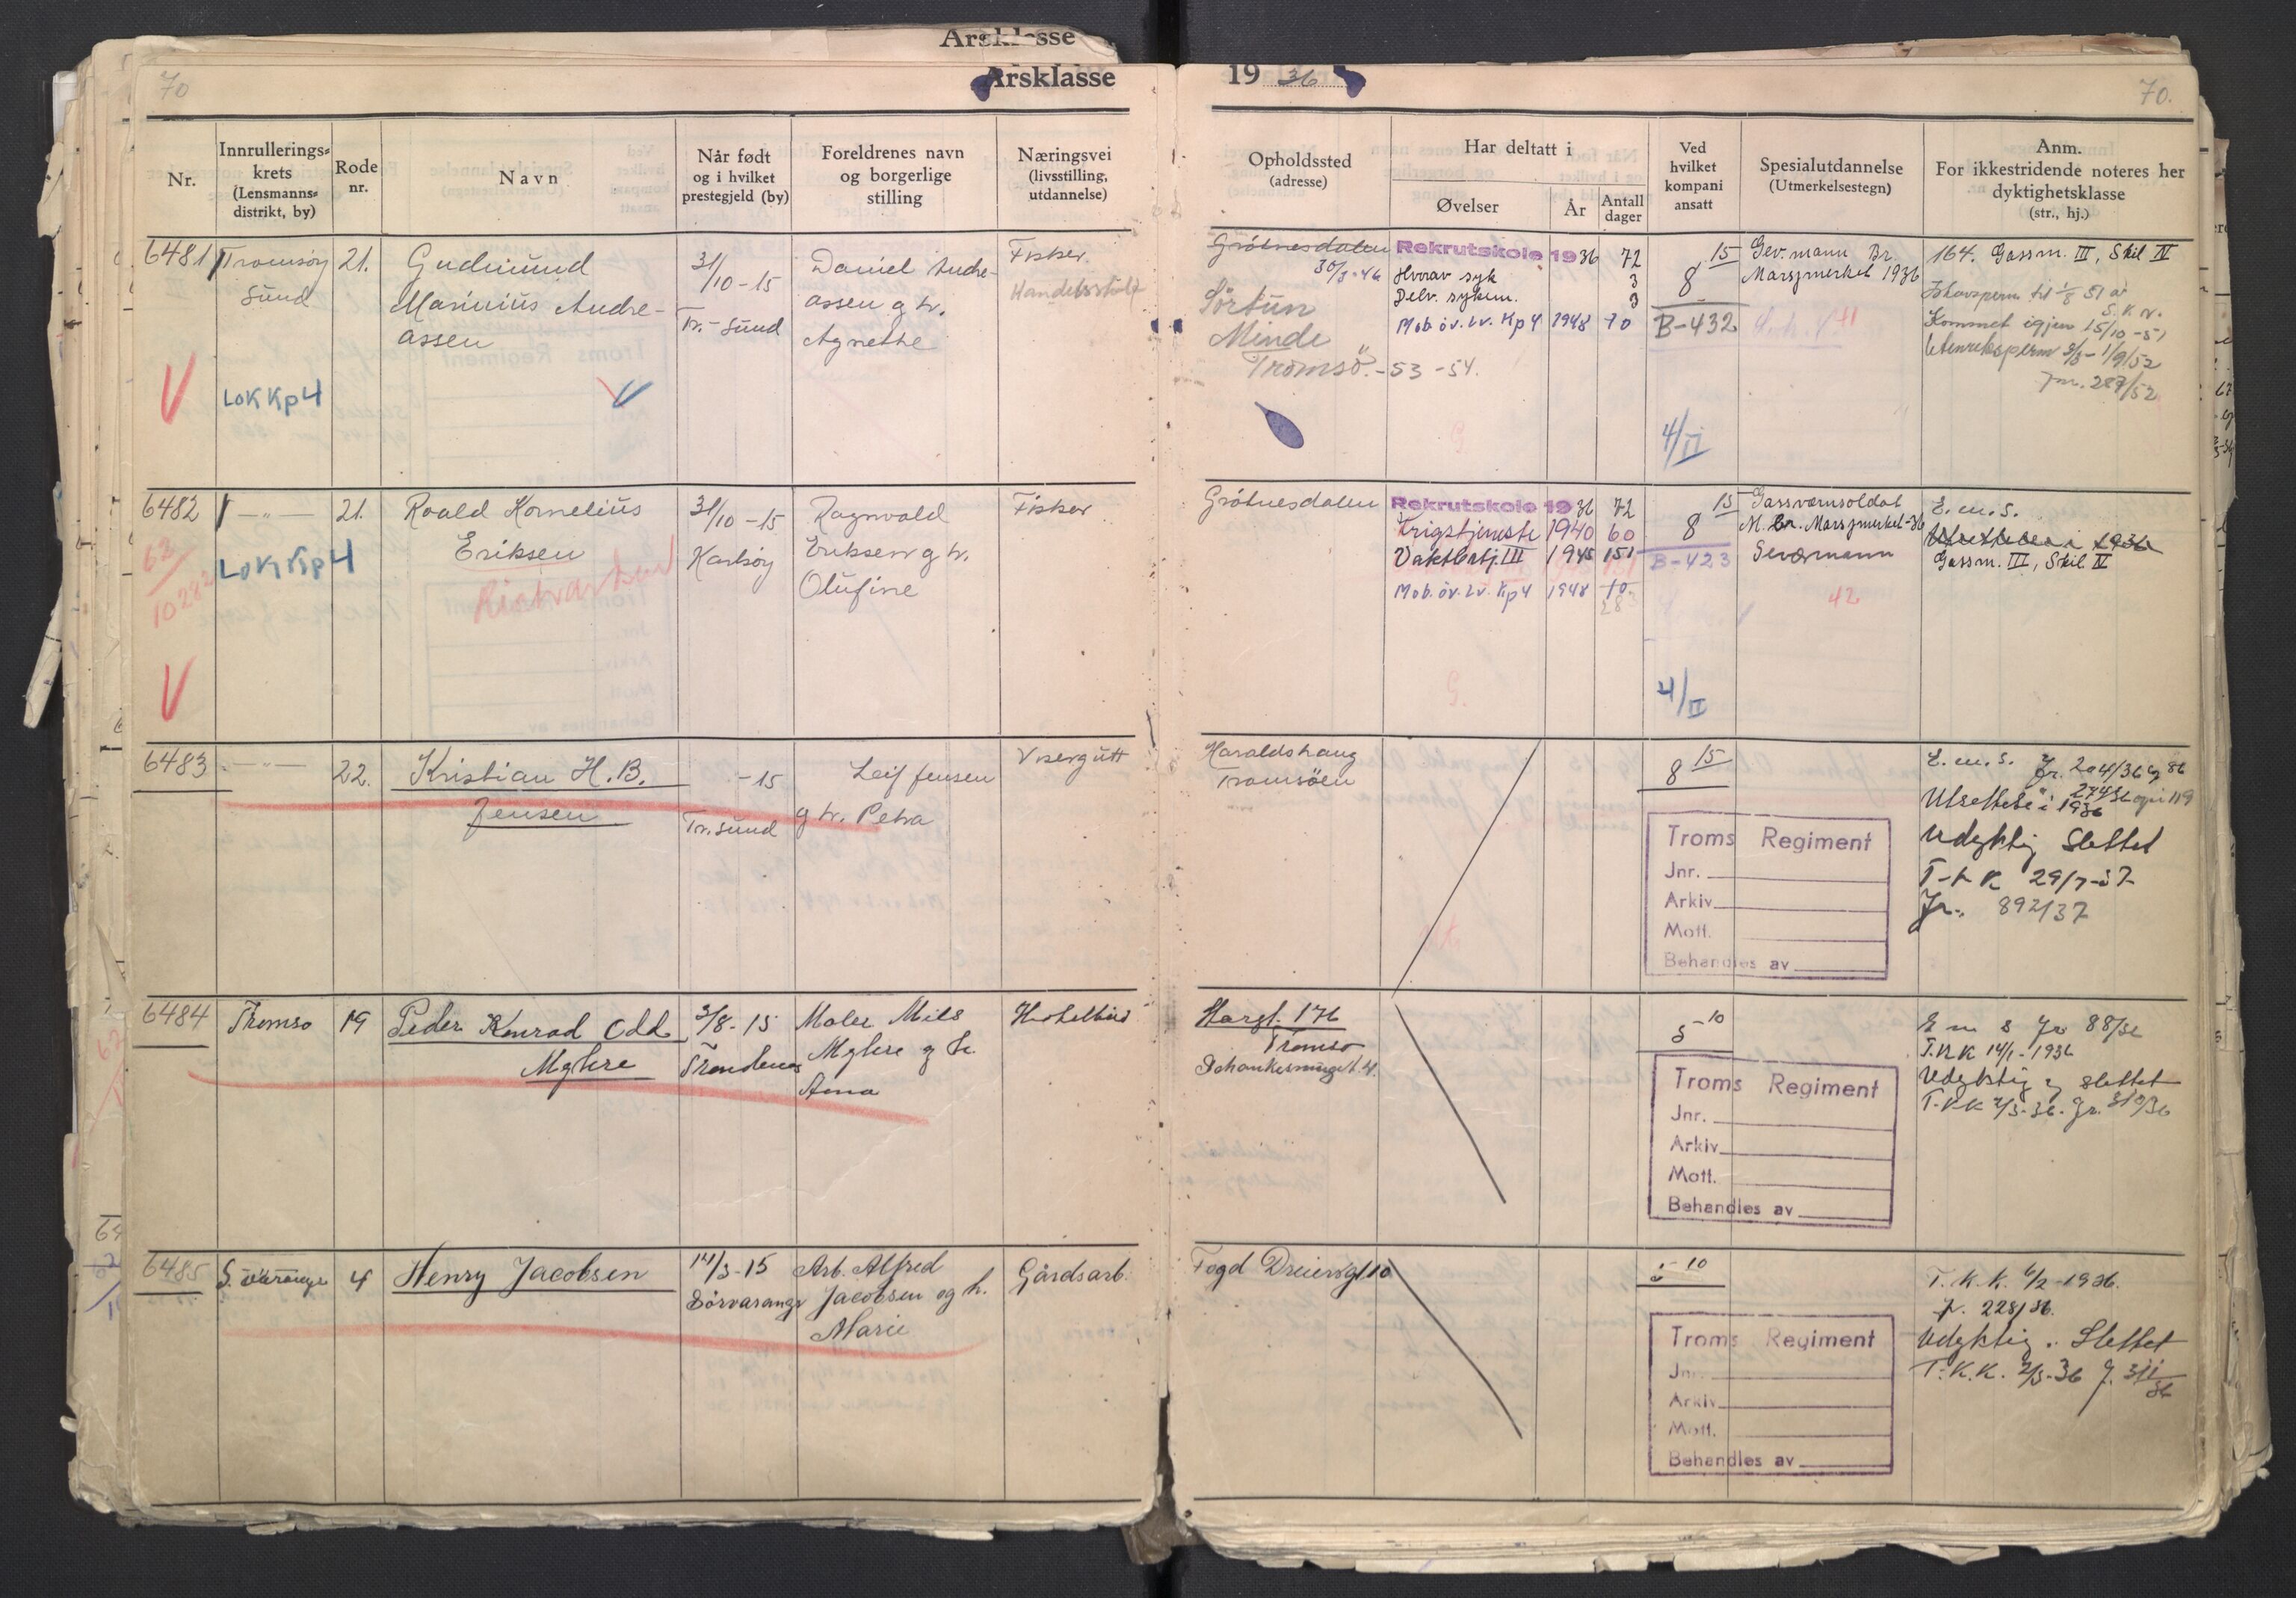 Årsklasse
70
Årsklasse
19 36
70.
Nr.
Innrullerings-
krets
(Lensmanns-
distrikt, by)
Rode
nr.
Navn
Når født
og i hvilket
prestegjeld (by)
Foreldrenes navn
og borgerlige
stilling
Næringsvei
(livsstilling,
utdannelse)
Opholdssted
(adresse)
Har deltatt i
Øvelser
År
Antall
dager
Ved
hvilket
kompani
ansatt
Spesialutdannelse
(Utmerkelsestegn)
Anm.
For ikkestridende noteres her
dyktighetsklasse
(str., hj.)
6481
Tromsøy
sund
LOK Kp 4
21.
Gudmund
Marinius Andre-
assen
31/10-15
Tr.-sund
Daniel Andre-
assen g h.
Agnethe
Fisker
Grötnesdalen
30/5-46
Sörtun
Minde
Tromsö.-53-54.
Rekrutskole 1936 72
Hvorav syk 3
Delv. sykm. 3
Mob. öv. Lv. Kp 4 1948 10
15
8
B-432
4/II
Gev. mann Br.
Marsjmerket 1936
164. Gassm. III, Skil IV
S.K.v.
Kommet igjen 15/10-51
Utenriksperm 3/5-1/9/52
Jnr. 287/52
6482
62
10282
— " —
LOK Kp 4
21.
Roald Kornelius
Eriksen
31/10-15
Karlsöy
Ragnvald
Eriksen g h.
Olufine
Fisker
Grötnesdalen
Rekrutskole 1936 72
Krigstjeneste 1940 60
Vaktbatj. III 1945 151
Mob. öv. Lv. Kp 4 1948 10
283
G.
15
8
B-423
4/II
Gassvernsoldat
M. Br. Marsjmerket-36
Geværmann
42
E.m.s.
Utsettelse i 1936
Gassm. III, Skil. IV
6483
— " —
22.
Kristian H. B.
Jensen
-15
Tr. sund
Leif Jensen
g h. Petra
Visergutt
Haraldshaug
Tromsöen
15
8
Troms Regiment
Jnr.
Arkiv
Mott.
Behandles av
E.m.s. Jr. 204/36 og 86
Utsettelse i 1936
Udyktig Slettet
T-K K 29/7-37
Jr. 892/37
6484
Tromsø
19
Peder Konrad Odd
Myhre
3/8-15
Trondenes
Maler Nils
Myhre g h.
Anna
Hotelbud
Storgt. 176
Tromsø
5-10
Troms Regiment
Jnr.
Arkiv
Mott.
Behandles av
E m s Jr 88/36
T.K.K 14/1-1936
Udyktig og slettet
T.K.K 2/3-36. Jr. 310/36
6485
S. Varanger
4
Henry Jacobsen
14/3-15
Sörvaranger
Arb. Alfred
Jacobsen og h.
Marie
Gårdsarb.
Fogd Dreiersgt 10
5-10
Troms Regiment
Jnr.
Arkiv
Mott.
Behandles av
T.K.K. 6/2-1936.
J. 228/36.
Udyktig. Slettet
T.K.K. 2/3-36 J. 311/36